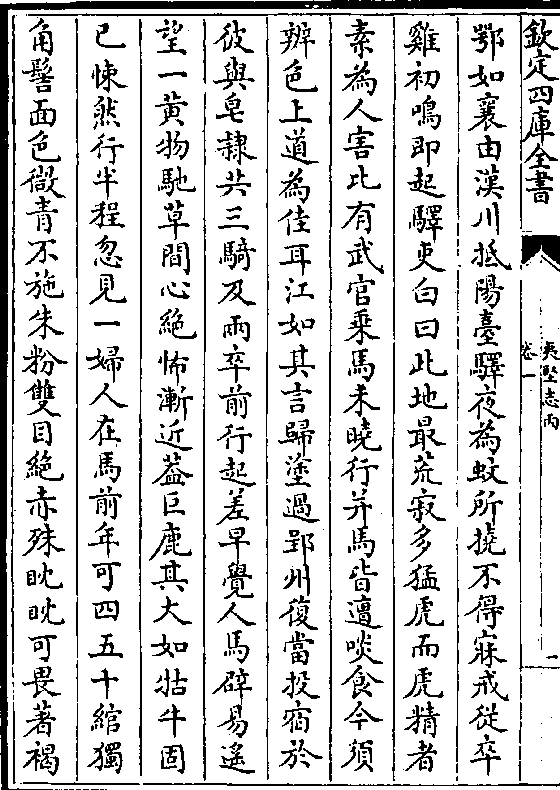 欽定四庫全書
夷堅志丙
卷一
一
鄂如襄由漢川抵陽臺驛夜為蚊所撓不得寐戒從卒
雞初鳴即起驛吏白曰此地最荒寂多猛虎而虎精者
素為人害比有武官乗馬未曉行并馬皆遭啖食今須
辨色上道為佳耳江如其言歸塗過郢州復當投宿於
彼與皂隸共三騎及兩卒前行起差早覺人馬辟易遙
望一黄物馳草間心絶怖漸近葢巨鹿其大如牯牛固
已悚然行半程忽見一婦人在馬前年可四五十綰獨
角髻面色微青不施朱粉雙目絶赤殊眈眈可畏著褐